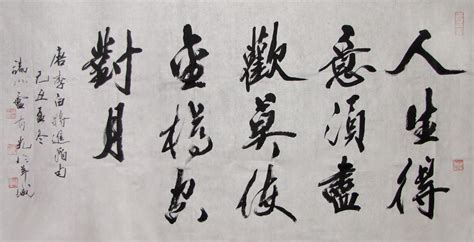 人生得
意須盡
歡莫使
金樽空
對月
唐李白將進酒句
己丑孟冬